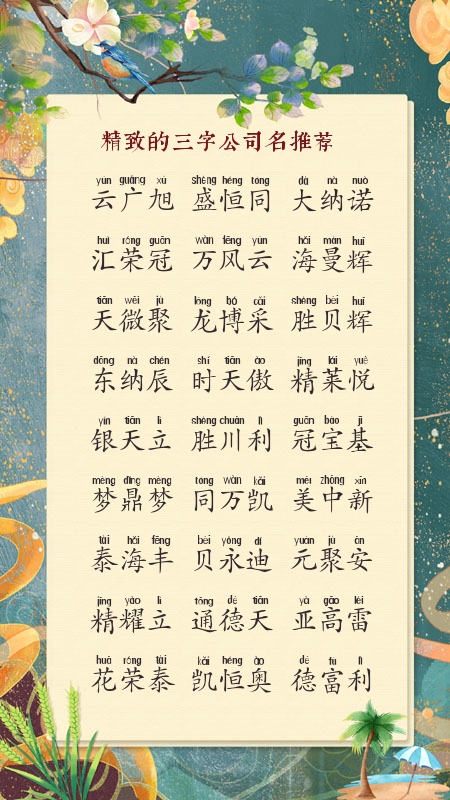 精致的三字公司名推荐
yún guǎng xù shèng héng tóng dà nà nuò
云广旭 盛恒同 大纳诺
huì róng guān wàn fēng yún hǎi màn huī
汇荣冠 万风云 海曼辉
tiān wēi jù lóng bó cǎi shèng bèi huī
天微聚 龙博采 胜贝辉
dōng nà chén shí tiān ào jīng lái yuè
东纳辰 时天傲 精莱悦
yín tiān lì shèng chuān lì guān bǎo jī
银天立 胜川利 冠宝基
mèng dǐng mèng tóng wàn kǎi měi zhōng xīn
梦鼎梦 同万凯 美中新
tài hǎi fēng bèi yǒng dí yuán jù ān
泰海丰 贝永迪 元聚安
jīng yào lì tōng dé tiān yà gāo léi
精耀立 通德天 亚高雷
huā róng tài kǎi héng ào dé fù lì
花荣泰 凯恒奥 德富利